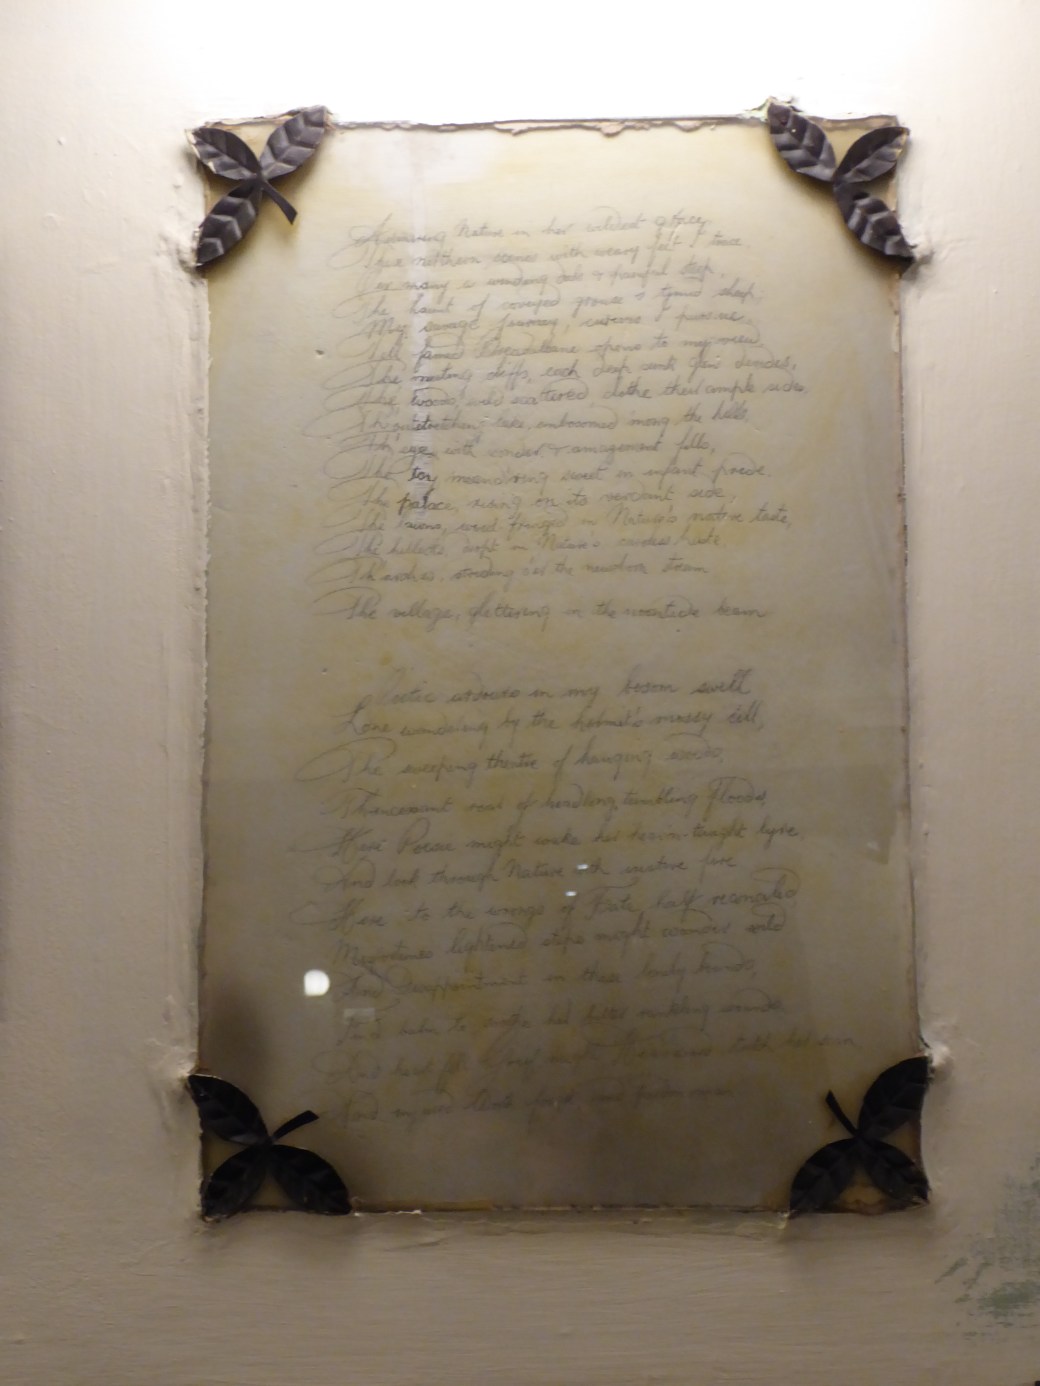 Admiring Nature in her wildest grace,
These northern scenes with weary feet I trace;
O'er many a winding dale & painful steep,
The haunt of coveyed grouse & timid sheep,
My savage journey, curious I pursue,
Till fam'd Breadalbane opens to my view.
The meeting cliffs, each deep sunk glen divides,
The woods, wild scattered, clothe their ample sides;
Th' outstretching lake, embosomed 'mong the hills,
Th' eye with wonder & amazement fills,
The Tay meandering sweet in infant pride,
The palace, rising on its verdant side,
The lawns, wood fringed in Nature's native taste,
The hillocks, dropt in Nature's careless haste,
Th' arches, striding o'er the newborn stream
The village, glittering in the noontide beam
Poetic ardours in my bosom swell
Lone wandering by the hermit's mossy cell,
The sweeping theatre of hanging woods,
Th' incessant roar of headlong tumbling floods
Here Poesie might wake her heav'n-taught lyre,
And look through Nature with creative fire
Here to the wrongs of Fate half reconciled
Misfortune's lightened steps might wander wild
And Disappointment in these lonely bounds,
Find balm to soothe her bitter rankling wounds